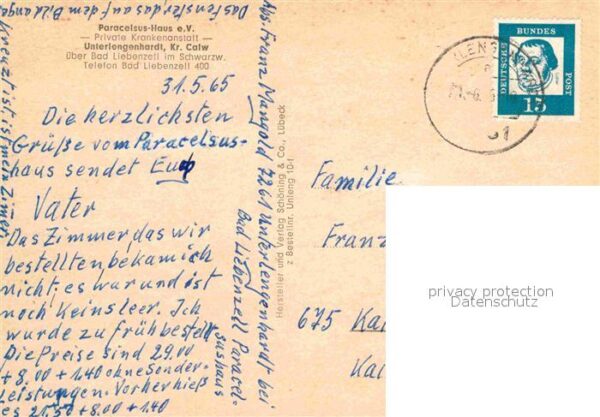 Paracelsus-Haus e.V.
— Private Krankenanstalt —
Unterlengenhardt, Kr. Calw
über Bad Liebenzell im Schwarzw.
Telefon Bad Liebenzell 400
31.5.65
Die herzlichsten
Grüße vom Paracelsus-
haus sendet Euch
Vater
Das Zimmer das wir
bestellten bekam ich
nicht, es war und ist
noch keins leer. Ich
wurde zu früh bestellt
Die Preise sind 29.00
+ 8.00 + 1.40 ohne Sonder-
Leistungen. Vorher hieß
es 21,50 + 8.00 + 1.40
Das Fenster das auf dem Bild angе-
kreuzt ist, ist mein Zimer
Abs. Franz Mangold 7261 Unterlengenhardt bei
Bad Liebenzell Paracel-
sushaus
Hersteller und Verlag Schöning & Co., Lübeck
z Bestellnr. Unleng 10-f
DEUTSCHE
BUNDES
POST
15
Familie
Franz
675 Kai
Kai
privacy protection
Datenschutz